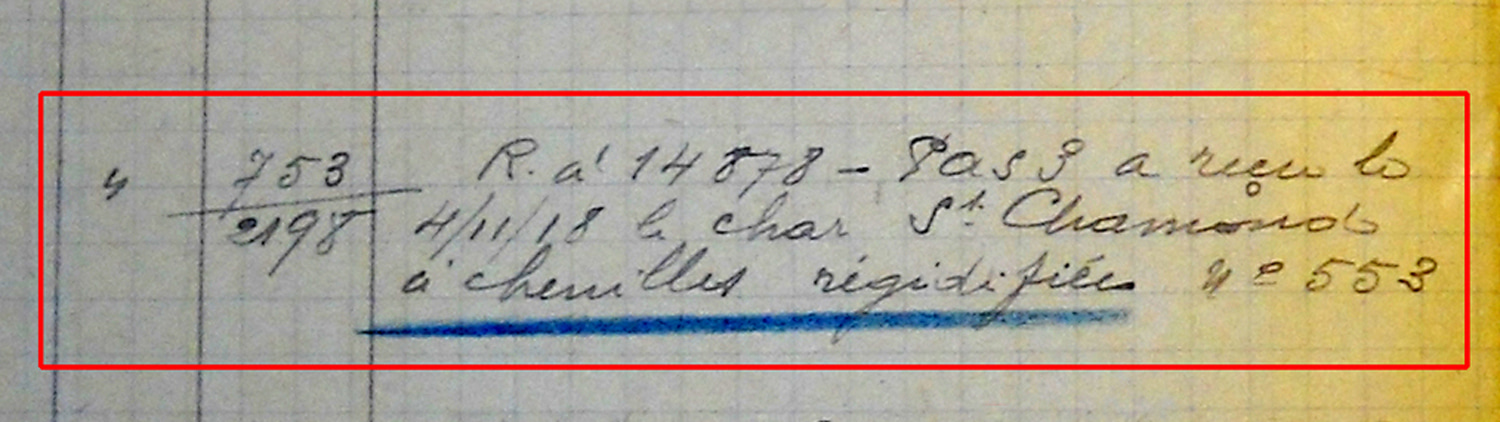 " 753 R. à 14878 - Pas 3 a reçu le
2198 4/11/18 le char St. Chamond
à chenilles régidifiées n° 553